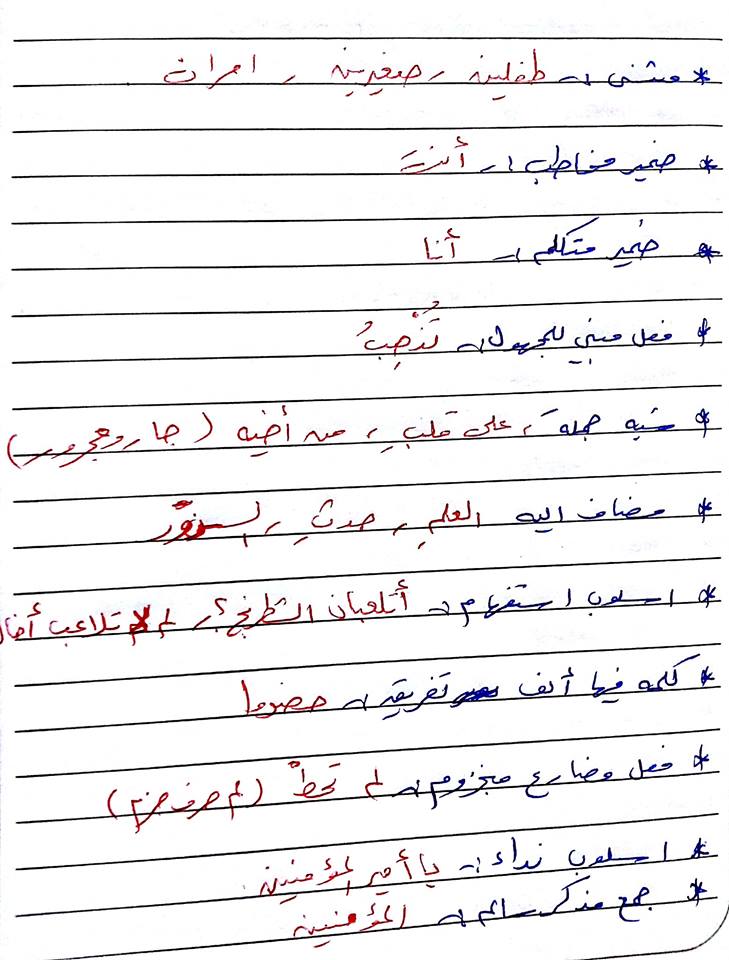 * مثنى :- طفلين ، صغيرين ، امرأت
* ضمير مخاطب :- أنتَ
* ضمير متكلم :- أنا
* فعل مبني للمجهول :- تُذْهِبُ
* شبه جملة ، على قلبِ ، من أخيه (جار ومجرور)
* مضاف اليه العلمِ ، حدثِ ،
* اسلوب استفهام :- أتلعبان الشطرنج ؟ ، لم لا تلاعب أخاك
* كلمه فيها ألف تفريقيه :- حضروا
* فعل مضارع مجزوم :- لم تحطْ (لم حرف جزم)
* اسلوب نداء :- يا أمير المؤمنين
* جمع مذكر سالم :- المؤمنين